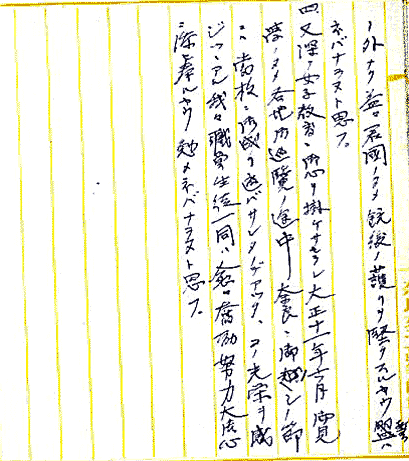 ノ外ナク益々君國ノタメ銃後ノ護リヲ堅クスルヤウ誓ハ
ネバナラヌト思フ。
四又深ク女子教育ニ御心ヲ掛ケサセラレ大正十一年六月御見
學ノタメ各地御巡覽ノ途中奈良ニ御越シノ節
ニハ當校ニ御成リ遊バサレタノデアツタ、コノ光栄ヲ感
ジツヽアル我々職員生徒一同ハ愈々奮励努力大御心
ニ添ヒ奉ルヤウ勉メネバナラヌト思フ。